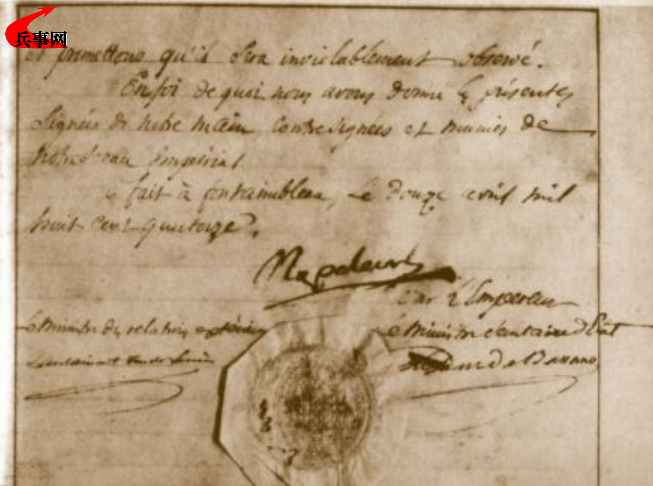 兵事网
et promettons qu'il sera inviolablement observé.
En foi de quoi nous avons donné les présentes
signées de notre main contresignées et munies de
notre sceau impérial
fait à fontainebleau, le douze avril mil
huit cent quatorze.
Napoleon
Par l'Empereur
Le Ministre des relations extérieures
Le Ministre Secrétaire d'Etat